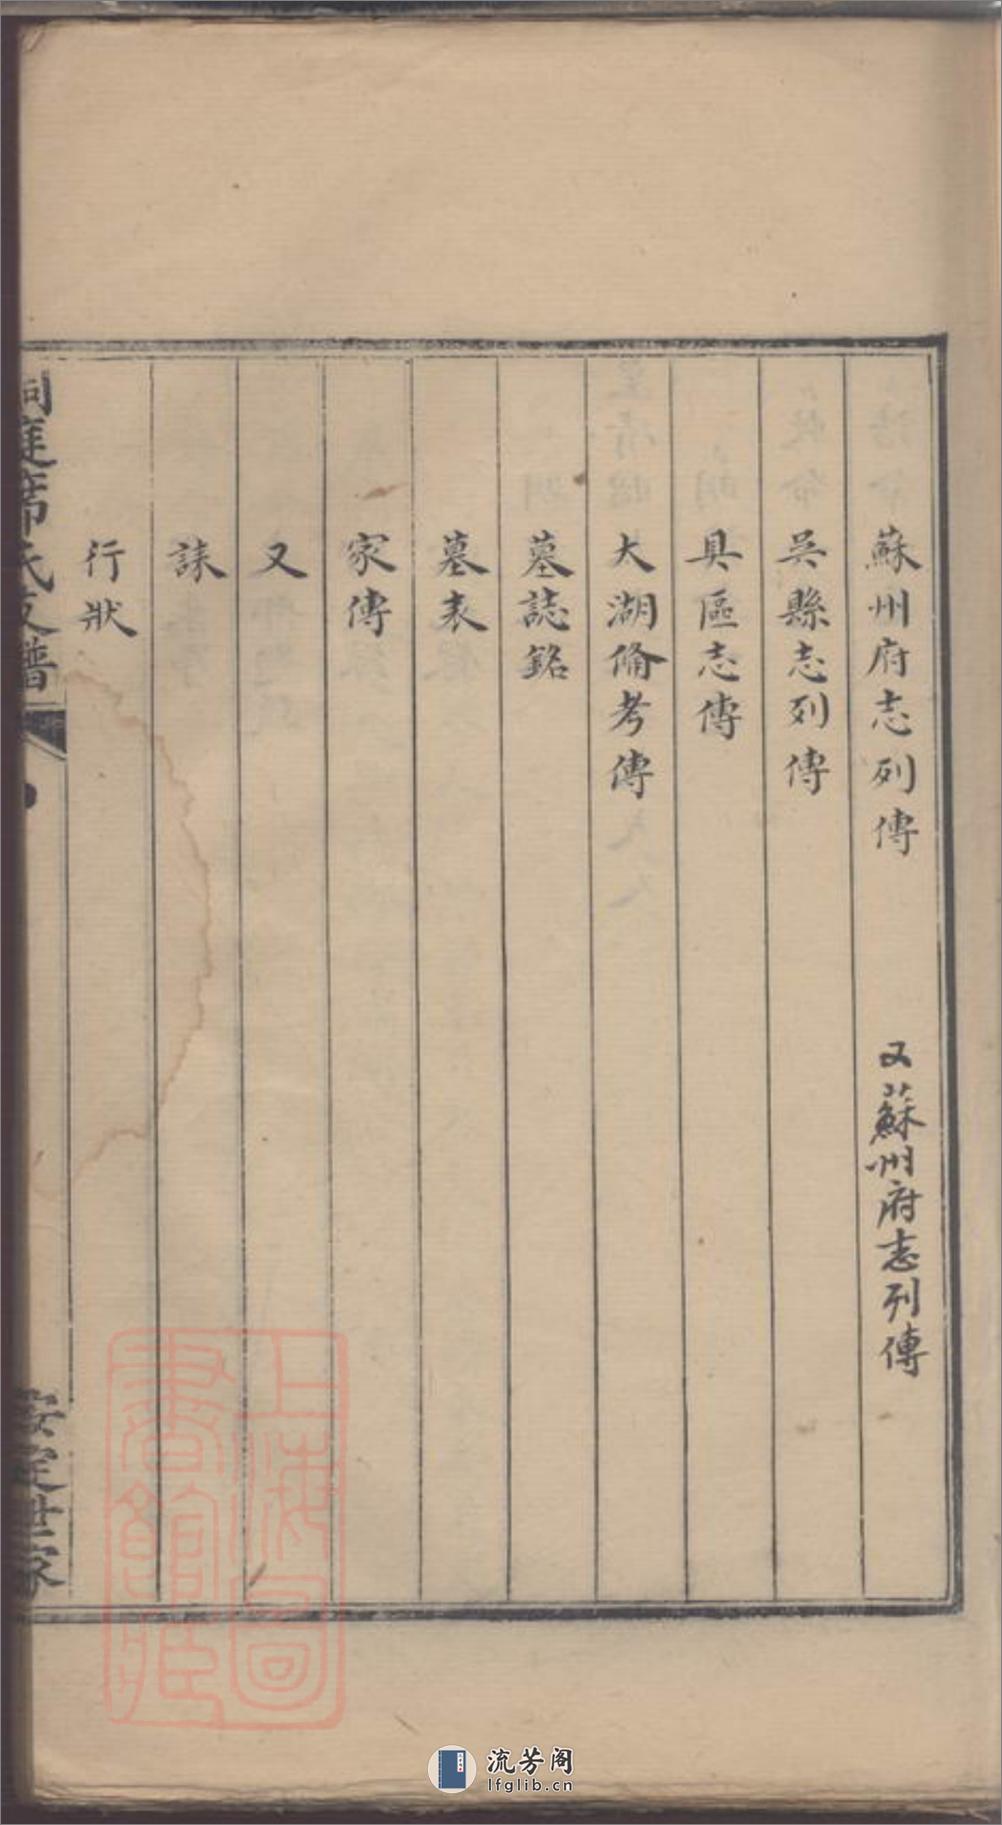 蘇州府志列傳　又蘇州府志列傳
吳縣志列傳
具區志傳
大湖俻考傳
墓誌銘
墓表
家傳
又
誄
行狀
洞庭席氏支譜
安定世家
上海圖書館藏
流芳阁
lfglib.cn